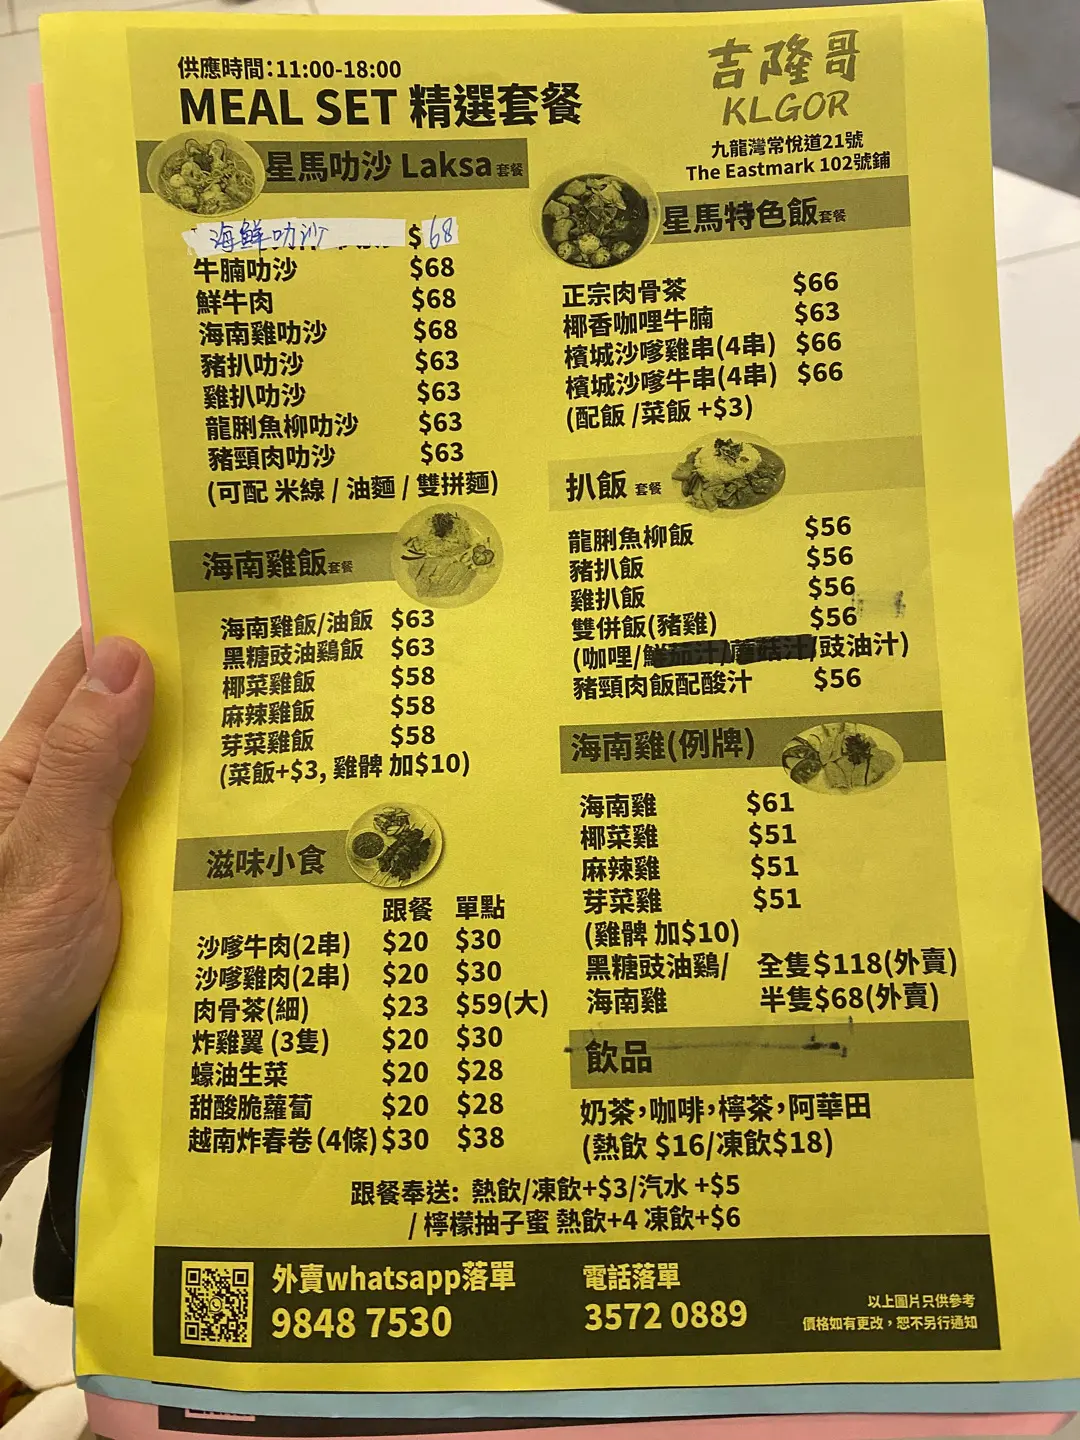 供應時間:11:00-18:00
MEAL SET 精選套餐
吉隆哥
KLGOR
九龍灣常悅道21號
The Eastmark 102號鋪
星馬叻沙 Laksa套餐
海鮮叻沙 $68
牛腩叻沙 $68
鮮牛肉 $68
海南雞叻沙 $68
豬扒叻沙 $63
雞扒叻沙 $63
龍脷魚柳叻沙 $63
豬頸肉叻沙 $63
(可配 米線 / 油麵 / 雙拼麵)
海南雞飯套餐
海南雞飯/油飯 $63
黑糖豉油鷄飯 $63
椰菜雞飯 $58
麻辣雞飯 $58
芽菜雞飯 $58
(菜飯+$3, 雞髀 加$10)
滋味小食
跟餐 單點
沙嗲牛肉(2串) $20 $30
沙嗲雞肉(2串) $20 $30
肉骨茶(細) $23 $59(大)
炸雞翼 (3隻) $20 $30
蠔油生菜 $20 $28
甜酸脆蘿蔔 $20 $28
越南炸春卷 (4條) $30 $38
星馬特色飯套餐
正宗肉骨茶 $66
椰香咖哩牛腩 $63
檳城沙嗲雞串(4串) $66
檳城沙嗲牛串(4串) $66
(配飯 /菜飯 +$3)
扒飯 套餐
龍脷魚柳飯 $56
豬扒飯 $56
雞扒飯 $56
雙併飯(豬雞) $56
(咖哩/鮮茄汁/蘑菇汁/豉油汁)
豬頸肉飯配酸汁 $56
海南雞(例牌)
海南雞 $61
椰菜雞 $51
麻辣雞 $51
芽菜雞 $51
(雞髀 加$10)
黑糖豉油鷄/ 全隻$118(外賣)
海南雞 半隻$68(外賣)
飲品
奶茶,咖啡,檸茶,阿華田
(熱飲 $16/凍飲$18)
跟餐奉送: 熱飲/凍飲+$3/汽水 +$5
/ 檸檬抽子蜜 熱飲+4 凍飲+$6
外賣whatsapp落單
9848 7530
電話落單
3572 0889
以上圖片只供參考
價格如有更改,恕不另行通知